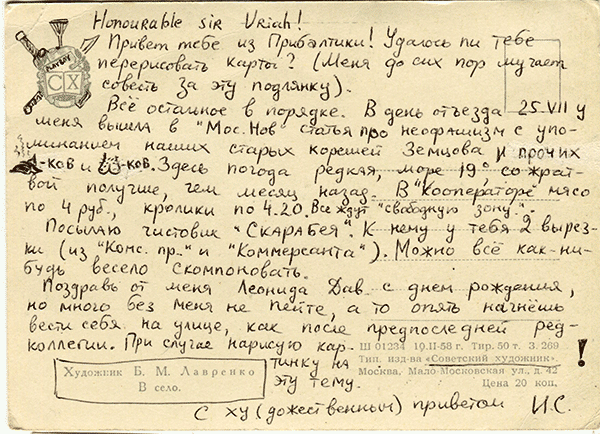 Honourable sir Uriah!
Привет тебе из Прибалтики! Удалось ли тебе
перерисовать карты? (Меня до сих пор мучает
совесть за эту подлянку).
Всё остальное в порядке. В день отъезда 25.VII у
меня вышла в "Мос.Нов" статья про неофашизм с упо-
минанием наших старых корешей Земцова и прочих
-ков и -ков. Здесь погода редкая, море 19°, со жрат-
вой получше, чем месяц назад. В "Кооператоре" мясо
по 4 руб., кролики по 4.20. Все ждут "свободную зону".
Посылаю чистовик "СКАРАБЕЯ". К нему у тебя 2 вырез-
ки (из "Комс. пр.." и "Коммерсанта"). Можно всё как-ни-
будь весело скомпоновать.
Поздравь от меня Леонида Дав. с днем рождения,
но много без меня не пейте, а то опять начнёшь
вести себя на улице, как после предпоследней ред-
коллегии. При случае нарисую кар-
тинку на
эту тему.
С ху(дожественным) приветом И.С.
CX
Художник Б. М. Лавренко
В село.
Ш 01234 19.II-58 г. Тир. 50 т. З. 269
Тип. изд-ва «Советский художник».
Москва, Мало-Московская ул., д. 42
Цена 20 коп.
!